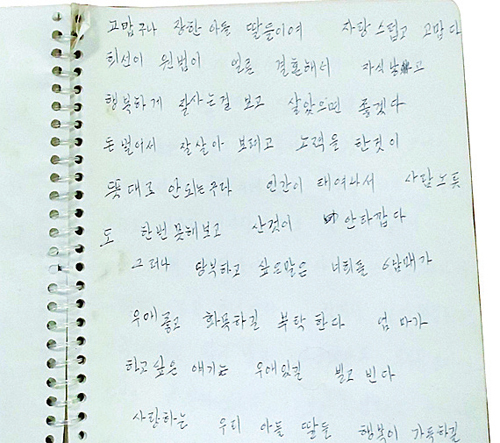 고맙구나 장한 아들 딸들이여 자랑스럽고 고맙다
희선이 원범이 얼른 결혼해서 자식 낳고
행복하게 잘사는걸 보고 살았으면 좋겠다
돈벌어서 잘살아 보려고 노력을 한것이
뜻대로 안되는구라 인간이 태여나서 사람노릇
도 한번 못해보고 산것이 안타깝다
그러나 당부하고 싶은말은 너희들 6남매가
우애좋고 화목하길 부탁한다 엄마가
하고싶은 얘기는 우애있길 빌고 빈다
사랑하는 우리 아들 딸들 행복이 가득하길